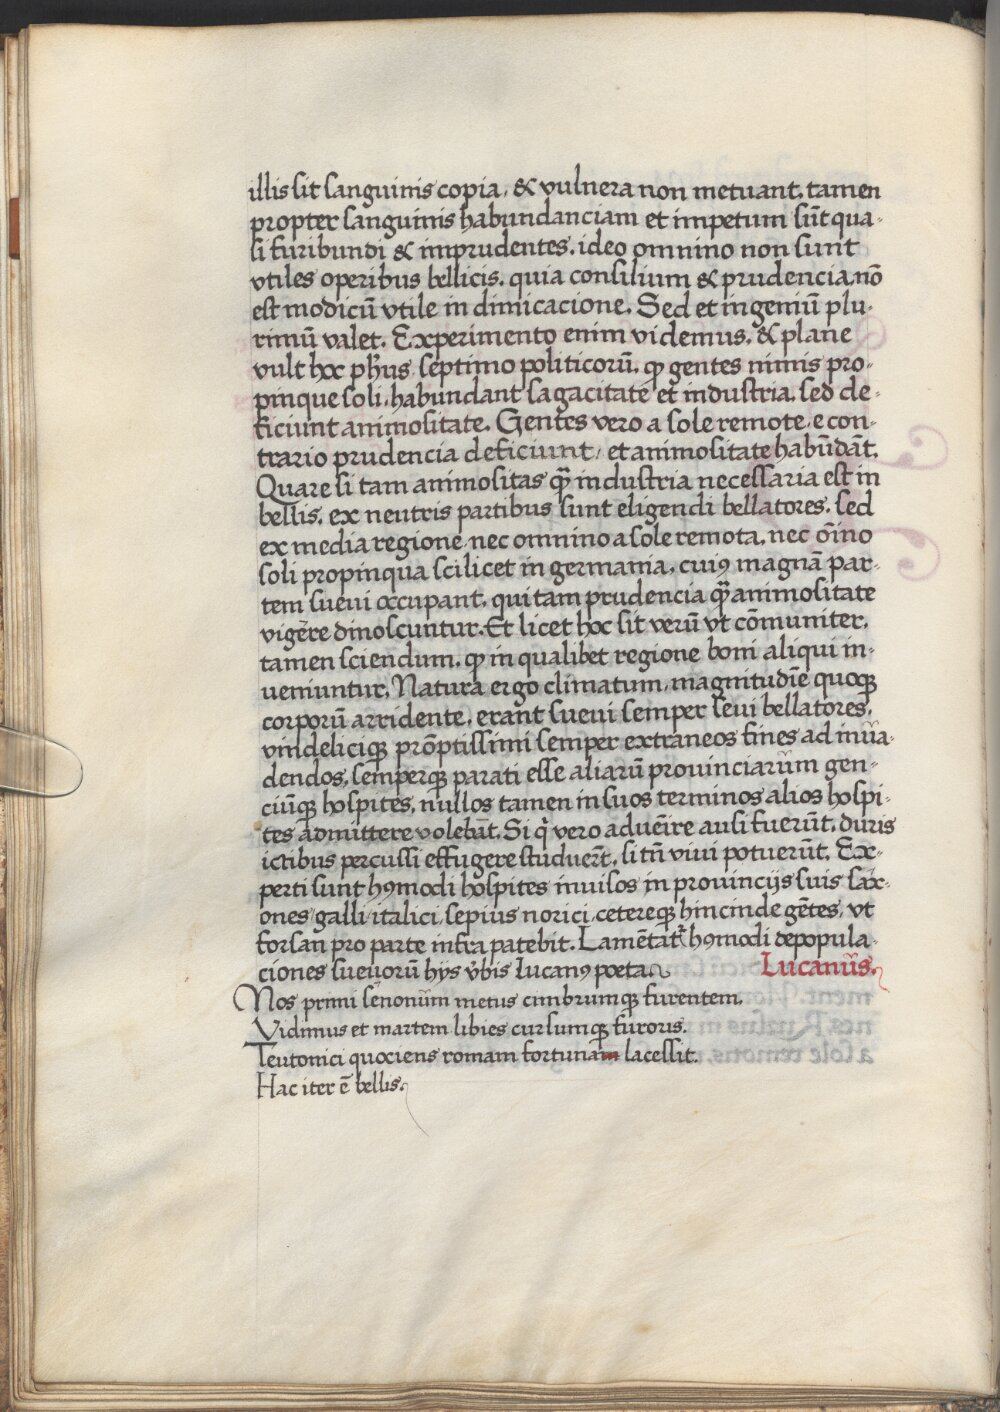 illis sit sanguinis copia, & vulnera non metuant, tamen
propter sanguinis habundanciam et impetum sūt qua-
si furibundi & imprudentes, ideo omnino non sunt
vtiles operibus bellicis, quia consilium & prudencia nō
est modicū vtile in dimicacione. Sed et ingeniū plu-
rimū valet. Experimento enim videmus, & plane
vult hoc ph̄us septimo politicorū, ꝙ gentes nimis pro-
pinque soli, habundant sagacitate et industria, sed de-
ficiunt animositate. Gentes vero a sole remote, e con-
trario prudencia deficiunt, et animositate habūdāt.
Quare si tam animositas q̄ industria necessaria est in
bellis, ex neutris partibus sunt eligendi bellatores, sed
ex media regione, nec omnino a sole remota, nec oīno
soli propinqua scilicet in germania, cuiꝰ magnā par-
tem sueui occupant, qui tam prudencia q̄ animositate
vigere dinoscuntur. Et licet hoc sit verū vt cōmuniter,
tamen sciendum, ꝙ in qualibet regione boni aliqui in-
ueniuntur. Natura ergo climatum, magnitudīe quoqꝫ
corporū arridente, erant sueui semper seui bellatores,
vindeliciqꝫ prōptissimi semper extraneos fines ad inua-
dendos, semperqꝫ parati esse aliarū prouinciarum gen-
ciūqꝫ hospites, nullos tamen in suos terminos alios hospi-
tes admittere volebāt. Si q̇ vero aduēire ausi fuerūt, duris
ictibus percussi effugere studuerūt, si tn̄ viui potuerūt. Ex-
perti sunt hꝰmodi hospites inuisos in prouincijs suis sax-
ones, galli, italici, sepius norici, cetereqꝫ hincinde gētes, vt
forsan pro parte infra patebit. Lamētāt᷑ hꝰmodi depopula-
ciones sueuorū hijs v̓bis Lucanꝰ poeta. Lucanus.
Nos primi senonum metus cimbrumqꝫ furentem.
Vidimus et martem libies cursumqꝫ furoris.
Teutonici quociens romam fortunam lacessit.
Hac iter ē bellis.